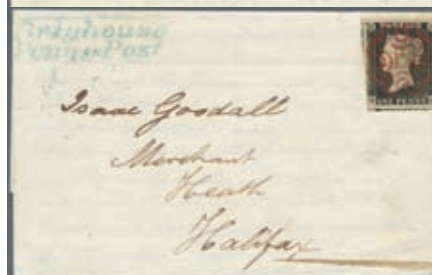 Brighouse
Penny Post
POSTAGE
ONE PENNY
Isaac Goodall
Merchant
Heath
Halifax